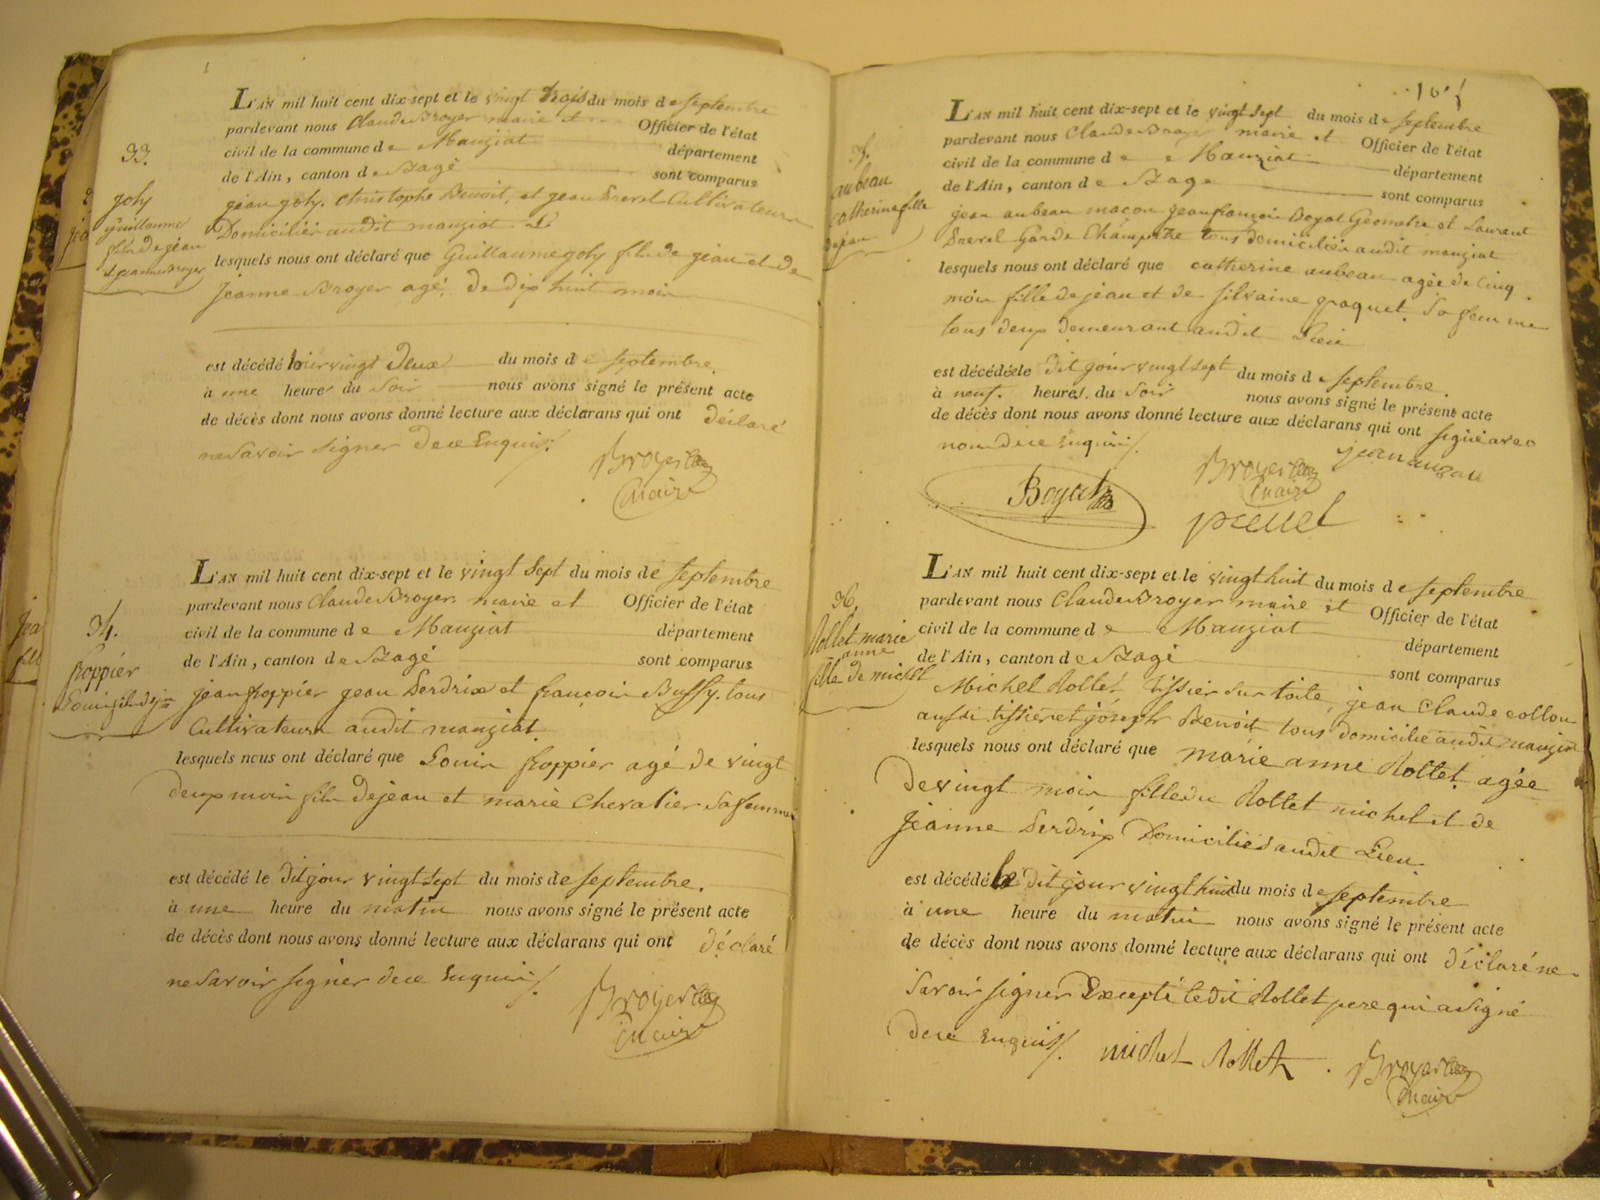 33.
goly
Guillaume
fils de jean
et jeanne Broyer
L'AN mil huit cent dix-sept et le vingt trois du mois de septembre
pardevant nous Claude Broyer maire et Officier de l'état
civil de la commune de Manziat département
de l'Ain, canton de Bagé sont comparus
jean goly, Christophe Benoit, et jean Prevel Cultivateurs
Domiciliés audit manziat
lesquels nous ont déclaré que Guillaume goly fils de jean et de
Jeanne Broyer agé de dix huit mois
est décédé hier vingt deux du mois de septembre
à une heure du soir nous avons signé le présent acte
de décès dont nous avons donné lecture aux déclarans qui ont déclaré
ne savoir signer de ce Enquis ./.
Broyer
Maire
34.
froppier
Louis fils de jn
L'AN mil huit cent dix-sept et le vingt sept du mois de septembre
pardevant nous Claude Broyer maire et Officier de l'état
civil de la commune de Manziat département
de l'Ain, canton de Bagé sont comparus
jean froppier jean Perdrix et françois Buffy, tous
Cultivateurs audit manziat
lesquels nous ont déclaré que Louis froppier agé de vingt
deux mois fils de jean et marie Chevalier sa femme
est décédé le dit jour vingt sept du mois de septembre.
à une heure du matin nous avons signé le présent acte
de décès dont nous avons donné lecture aux déclarans qui ont déclaré
ne savoir signer de ce Enquis ./.
Broyer
Maire
35.
aubeau
catherine fille
de jean
L'AN mil huit cent dix-sept et le vingt sept du mois de septembre
pardevant nous Claude Broyer maire et Officier de l'état
civil de la commune de Manziat département
de l'Ain, canton de Bagé sont comparus
jean aubeau maçon jean françois Boyat Géometre et Laurent
Prevel Garde Champetre tous domiciliés audit manziat
lesquels nous ont déclaré que catherine aubeau agée de cinq
mois fille de jean et de silvaine paquet sa femme
tous deux demeurant audit Lieu
est décédée le dit jour vingt sept du mois de septembre.
à neuf heures du soir nous avons signé le présent acte
de décès dont nous avons donné lecture aux déclarans qui ont signé avec
nous de ce Enquis ./.
Boyat
Broyer
Maire
prevel
36.
Rollet marie
anne
fille de michel
L'AN mil huit cent dix-sept et le vingt huit du mois de septembre
pardevant nous Claude Broyer maire et Officier de l'état
civil de la commune de Manziat département
de l'Ain, canton de Bagé sont comparus
Michel Rollet, tissier sur toile, jean Claude collon
aussi tissier et joseph Benoit tous domiciliés audit manziat
lesquels nous ont déclaré que marie anne Rollet, agée
de vingt mois fille du Rollet michel et de
jeanne Perdrix Domiciliés audit Lieu
est décédé le dit jour vingt huit du mois de septembre
à une heure du matin nous avons signé le présent acte
de décès dont nous avons donné lecture aux déclarans qui ont déclaré ne
savoir signer Excepté le dit Rollet pere qui a signé
de ce Enquis ./. michel Rollet
Broyer
Maire